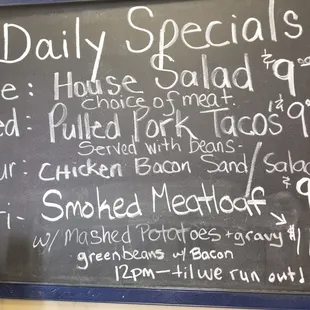 Daily Specials
e: House Salad $9
choice of meat.
ed: Pulled Pork Tacos $9
Served with beans-
ur: Chicken Bacon Sand/Salad
$9
i- Smoked Meatloaf
w/ Mashed Potatoes + gravy $1
greenbeans w/ Bacon
12pm-til we run out!